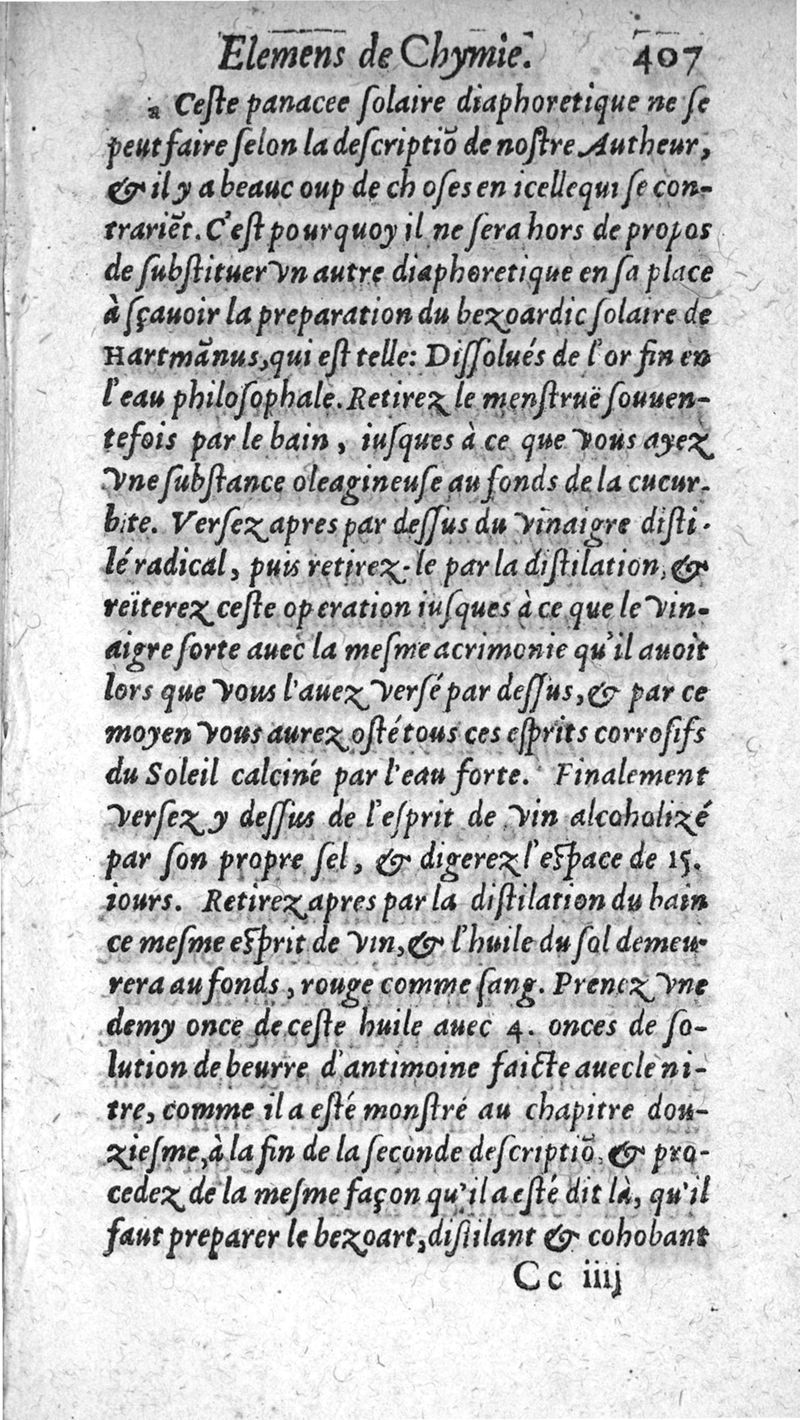 Elemens de Chymie. 407
a Ceſte panacee ſolaire diaphoretique ne ſe
peut faire ſelon la deſcriptiō de noſtre Autheur,
& il y a beauc oup de ch oſes en icelle qui ſe con-
trariēt. C'eſt pourquoy il ne ſera hors de propos
de ſubſtituer vn autre diaphoretique en ſa place
à ſçauoir la preparation du bezoardic ſolaire de
Hartmānus, qui eſt telle: Diſſolués de l'or fin en
l'eau philoſophale. Retirez le menſtruë ſouuen-
tefois par le bain, iuſques à ce que vous ayez
vne ſubſtance oleagineuſe au fonds de la cucur-
bite. Verſez apres par deſſus du vinaigre diſti-
lé radical, puis retirez-le par la diſtilation, &
reïterez ceſte operation iuſques à ce que le vin-
aigre ſorte auec la meſme acrimonie qu'il auoit
lors que vous l'auez verſé par deſſus, & par ce
moyen vous aurez oſté tous ces eſprits corroſifs
du Soleil calciné par l'eau forte. Finalement
verſez y deſſus de l'eſprit de vin alcoholizé
par ſon propre ſel, & digerez l'eſpace de 15.
iours. Retirez apres par la diſtilation du bain
ce meſme eſprit de vin, & l'huile du ſol demeu-
rera au fonds, rouge comme ſang. Prenez vne
demy once de ceſte huile auec 4. onces de ſo-
lution de beurre d'antimoine faicte auec le ni-
tre, comme il a eſté monſtré au chapitre dou-
zieſme, à la fin de la ſeconde deſcriptiō, & pro-
cedez de la meſme façon qu'il a eſté dit là, qu'il
faut preparer le bezoart, diſtilant & cohobant
Cc iiij